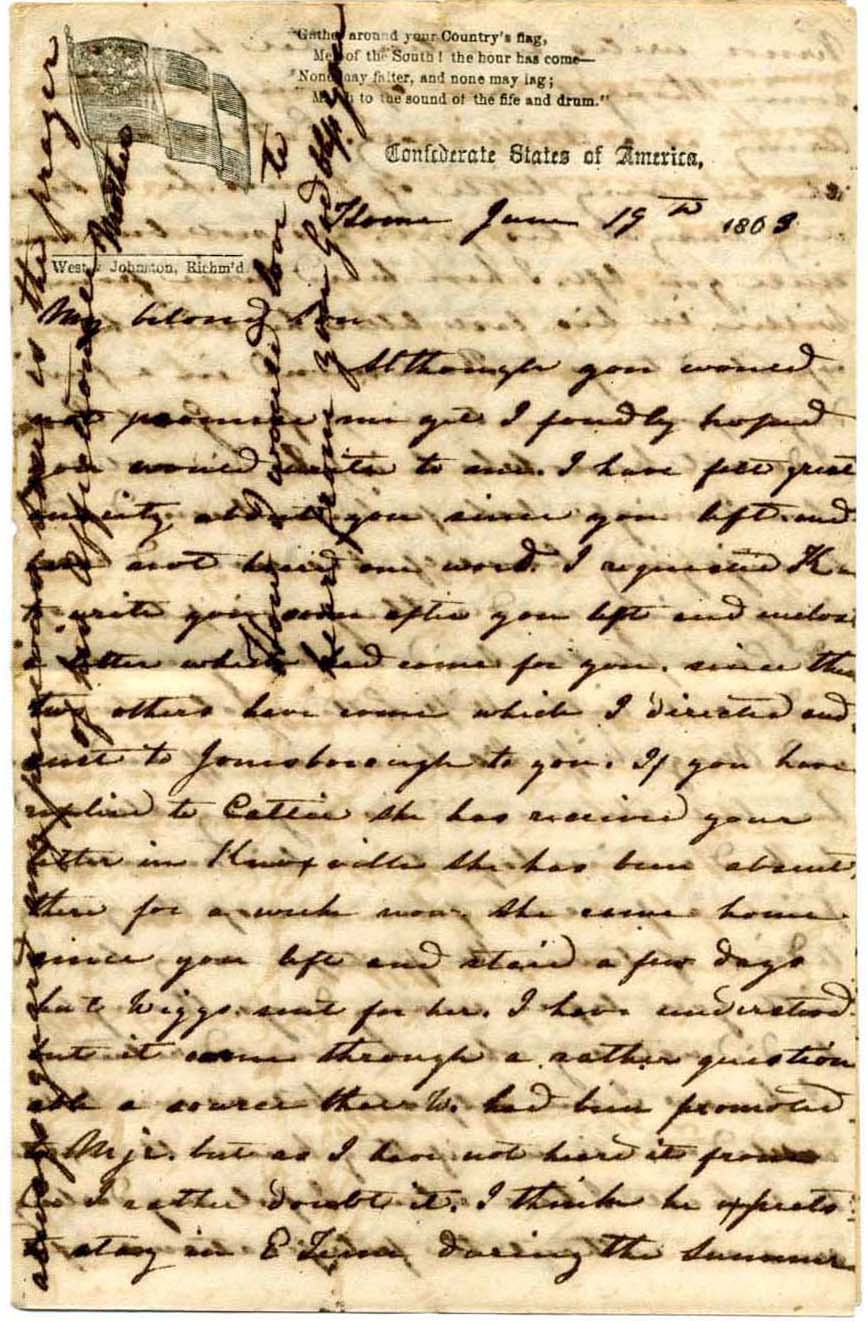 "Gather around your Country's flag,
Men of the South! the hour has come—
None may falter, and none may lag;
March to the sound of the fife and drum."
Confederate States of America,
West & Johnston, Richm'd
Home June 19th 1863
My beloved Son
Although you would
not promise me yet I fondly hoped
you would write to me. I have felt great
anxiety about you since you left and
have not heard one word. I requested K
to write you soon after you left and enclose
a letter which had come for you. since then
two others have come which I directed and
sent to Jonesborough to you. If you have
replied to Cattie she has received your
letter in Knoxville she has been absent
there for a week now. she came home
since you left and staid a few days
but Wiggs sent for her. I have understood
but it came through a rather question
able a source that W. had been promoted
to Mjr. but as I have not heard it from
I rather doubt it. I think he expects
to stay in E Tenn during the Summer
How I would love to
hear from you God bless you
always guard my precious Son is the prayer
of his affectionate Mother